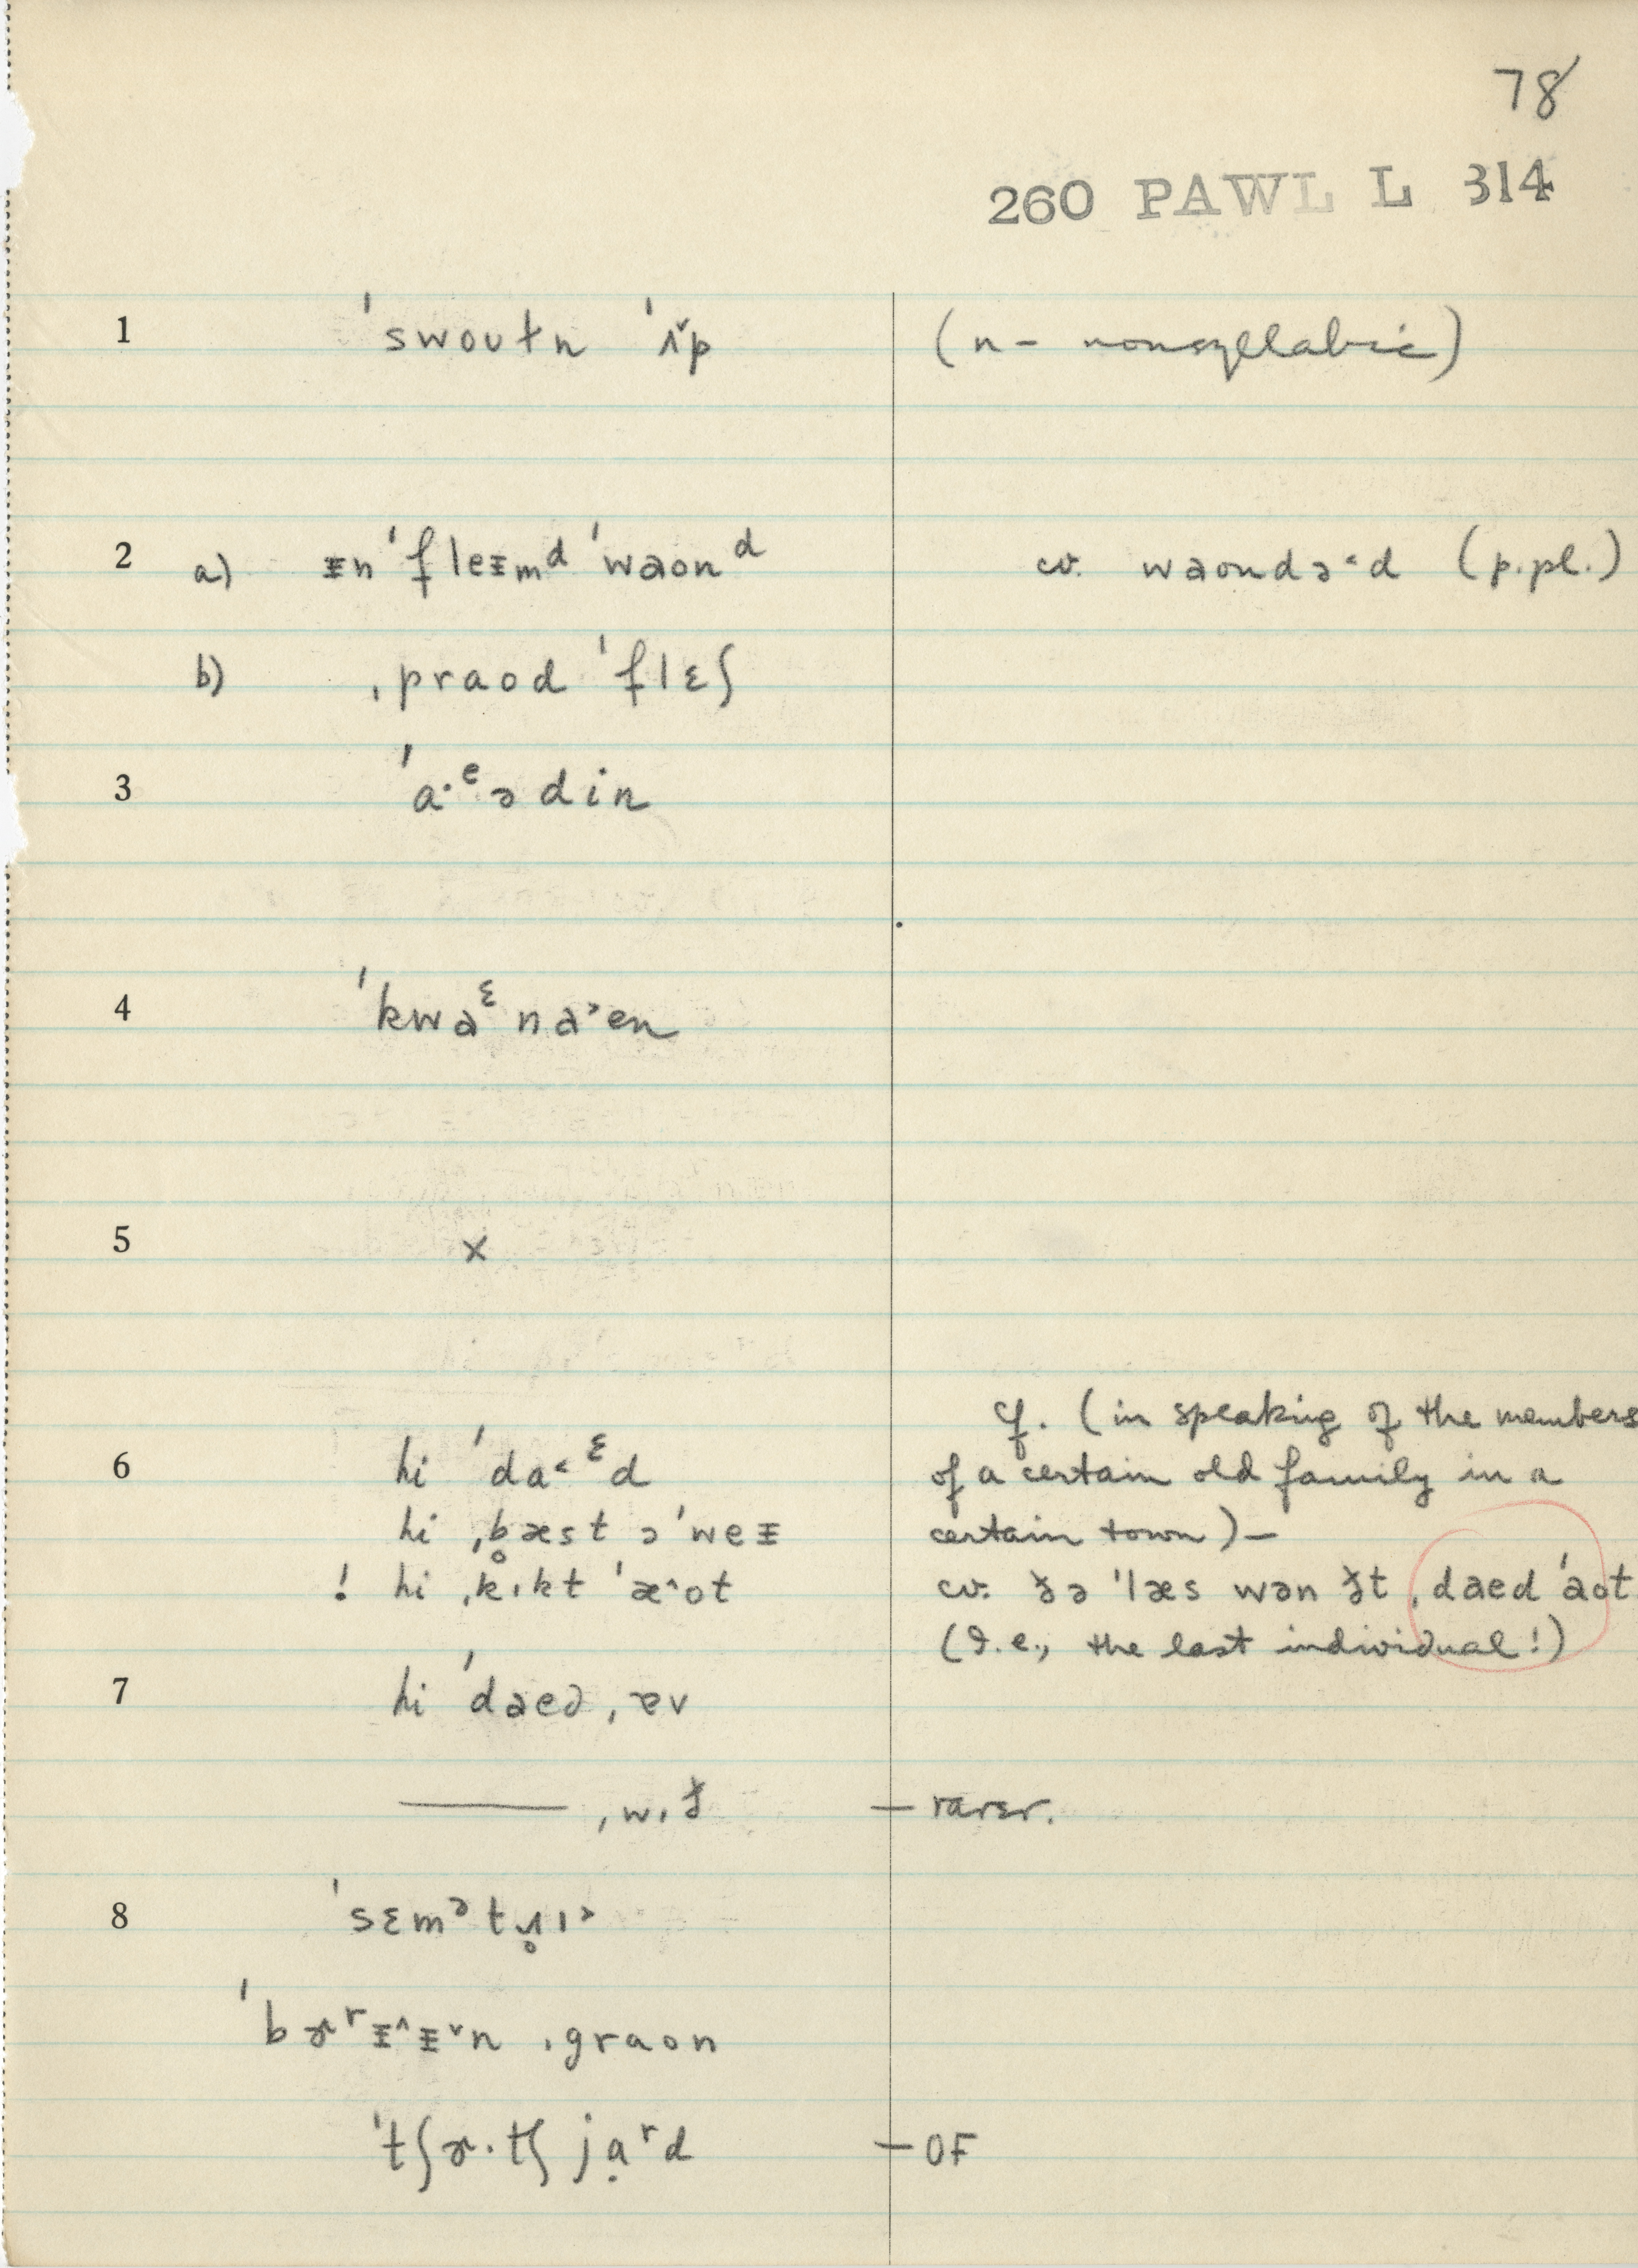 78
260 PAWL L 314
1 ˈswoʊtn ˈʌ˅p (n – nonsyllabic)
2 a) ᵻnˈfleᵻmᵈ ˈwaonᵈ cv. waondə˂d (p.pl.)
b) ˌpraod ˈflɛʃ
3 ˈa·ᵉədin
4 ˈkwaᵋna˃en
5 x
6 hi ˈda˂ᵋd cf. (in speaking of the members
of a certain old family in a
hi ˌb̥æst əˈweᵻ certain town) –
! hi ˌkɪkt ˈæ^ot cv. ðə ˈlæs wən ðt ˌdaed ˈaot
(I.e., the last individual!)
7 hi ˈdaed ˌɐv
—— ˌwɪð — rarer.
8 ˈsɛmᵊtɹ̥ɪ˃
ˈbɚʳᵻ^ᵻ˅n ˌgraon
ˈtʃɚ·tʃ jạʳd — OF